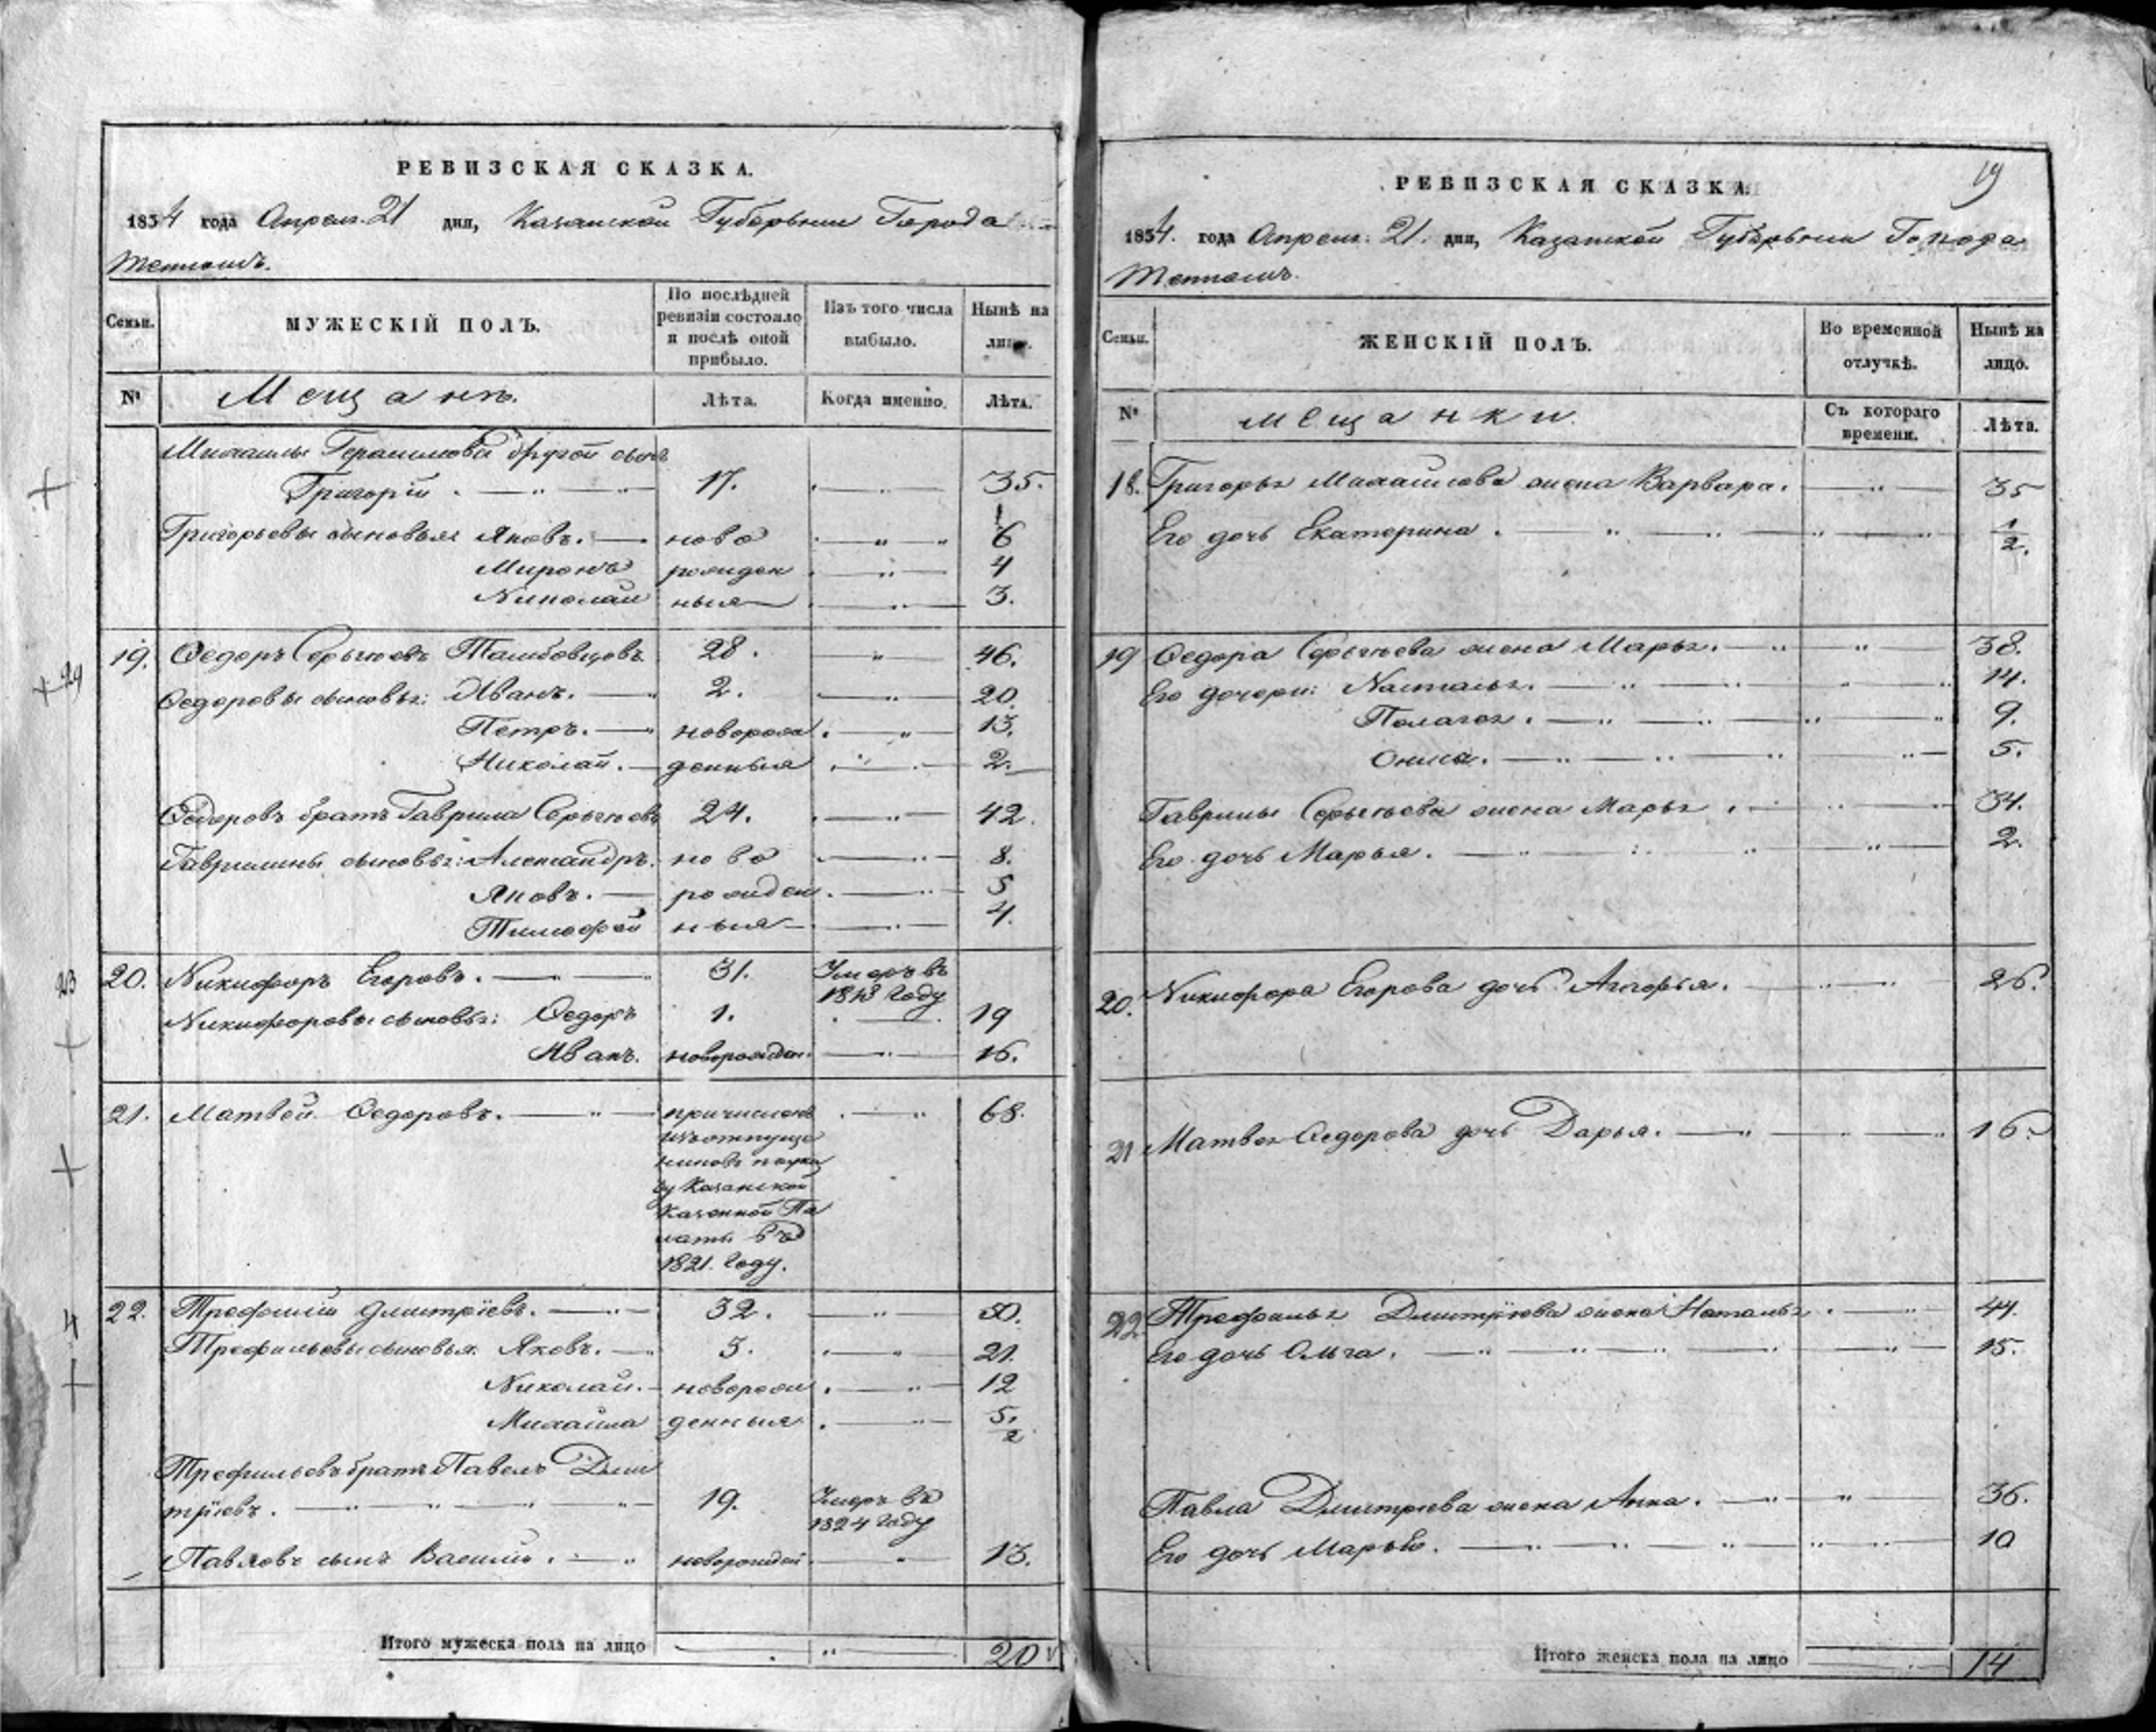 РЕВИЗСКАЯ СКАЗКА.
1834 года Апреля 21 дня, Казанской Губернии Города
Тетюшъ.
Семьи. МУЖЕСКІЙ ПОЛЪ. По послѣдней ревизіи состояло и послѣ оной прибыло. Изъ того числа выбыло. Нынѣ на лицо.
№ Мещанъ. Лѣта. Когда именно. Лѣта.
Михаилы Герасимова другой сынъ
Григорій . 17. 35.
Григорьевы сыновья: Яковъ. ново 6
Миронъ рожден 4
Николай ныя 3.
19. Ѳедоръ Сергѣевъ Тамбовцовъ 28. 46.
Ѳедоровы сыновья: Иванъ. 2. 20.
Петръ. новорож 13.
Николай. денныя 2.
Ѳедоровъ братъ Гаврила Сергѣевъ 24. 42.
Гаврилины сыновья: Александръ. ново 8.
Яковъ. рожден 5
Тимофей ныя 4.
20. Никифоръ Егоровъ. 31. Умеръ въ
18 3 году
Никифоровы сыновья: Ѳедоръ 1. 19
Иванъ. новорожден. 16.
21. Матвей Ѳедоровъ. причисленъ 68.
изъ отпуще
никовъ по ука
зу Казанской
Казенной Па
латы въ
1821. году.
22. Трефилій Дмитріевъ. 32. 50.
Трефильевы сыновья Яковъ. 3. 21.
Николай. новорож 12
Михайла денныя 5.
2
Трефильевъ братъ Павелъ Дми
тріевъ. 19. Умеръ въ
1824 году
Павловъ сынъ Василій. новорожден 13.
Итого мужеска пола на лицо 20
19
РЕВИЗСКАЯ СКАЗКА
1834. года Апреля 21. дня, Казанской Губерніи Города
Тетюшъ.
Семьи. ЖЕНСКІЙ ПОЛЪ. Во временной отлучкѣ. Нынѣ на лицо.
№ мещанки. Съ котораго времени. Лѣта.
18. Григорья Михайлова жена Варвара. 35
Его дочь Екатерина. 1/2.
19 Ѳедора Сергѣева жена Марья. 38.
Его дочери: Насталья. 14.
Палагея. 9.
5.
Гаврилы Сергѣева жена Марья. 34.
Его дочь Марья. 2.
20. Никифора Егорова дочь Агафья. 26.
21 Матвея Ѳедорова дочь Дарья. 16.
22. Трефилья Дмитріева жена Наталья. 44.
Его дочь Ольга. 15.
Павла Дмитріева жена Анна. 36.
Его дочь Марья. 10
Итого женска пола на лицо 14